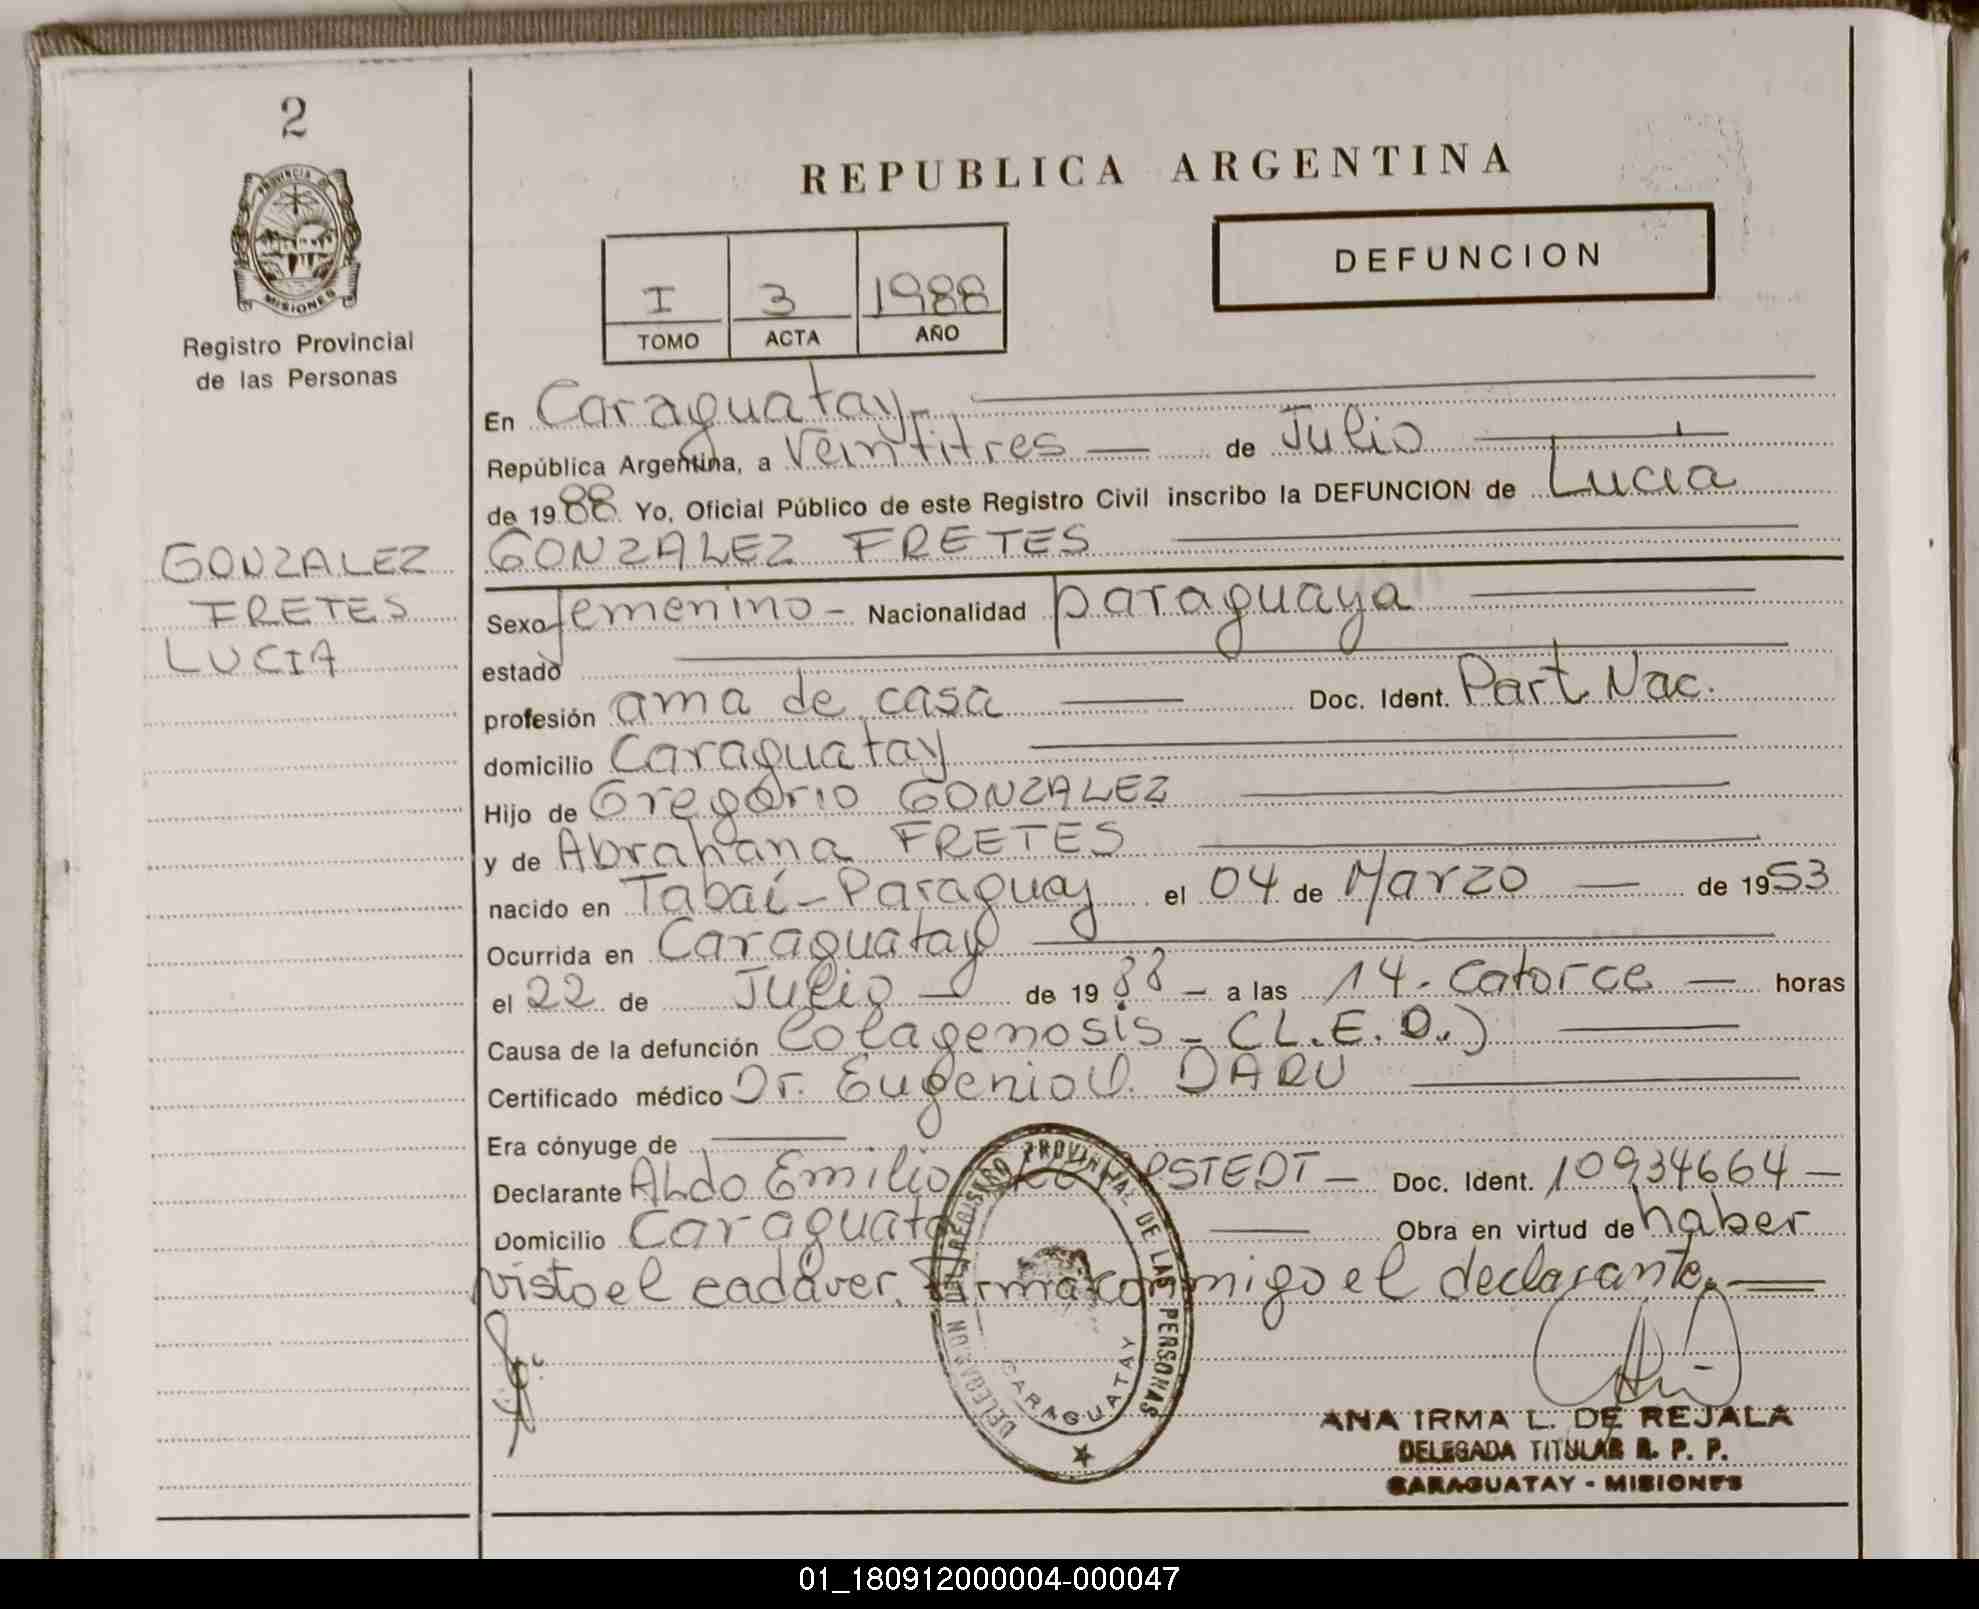 2
PROVINCIA DE
MISIONES
Registro Provincial
de las Personas
GONZALEZ
FRETES
LUCIA
REPUBLICA ARGENTINA
I 3 1988
TOMO ACTA AÑO
DEFUNCION
En Caraguatay
República Argentina, a Veintitres de Julio
de 1988 Yo, Oficial Público de este Registro Civil inscribo la DEFUNCION de Lucia
GONZALEZ FRETES
Sexo femenino - Nacionalidad paraguaya
estado
profesión ama de casa Doc. Ident. Part. Nac.
domicilio Caraguatay
Hijo de Gregorio GONZALEZ
y de Abrahana FRETES
nacido en Tabaí - Paraguay el 04 de Marzo de 1953
Ocurrida en Caraguatay
el 22 de Julio - de 1988 - a las 14 - Catorce - horas
Causa de la defunción Colagenosis - (L.E.D.)
Certificado médico Dr. Eugenio U. DARU
Era cónyuge de
Declarante Aldo Emilio Doc. Ident. 10934664 -
Domicilio Caraguatay Obra en virtud de haber
visto el cadáver. Firma conmigo el declarante.
DELEGACION DEL REGISTRO PROVINCIAL DE LAS PERSONAS
CARAGUATAY
ANA IRMA L. DE REJALA
DELEGADA TITULAR R. P. P.
CARAGUATAY - MISIONES
01_180912000004-000047